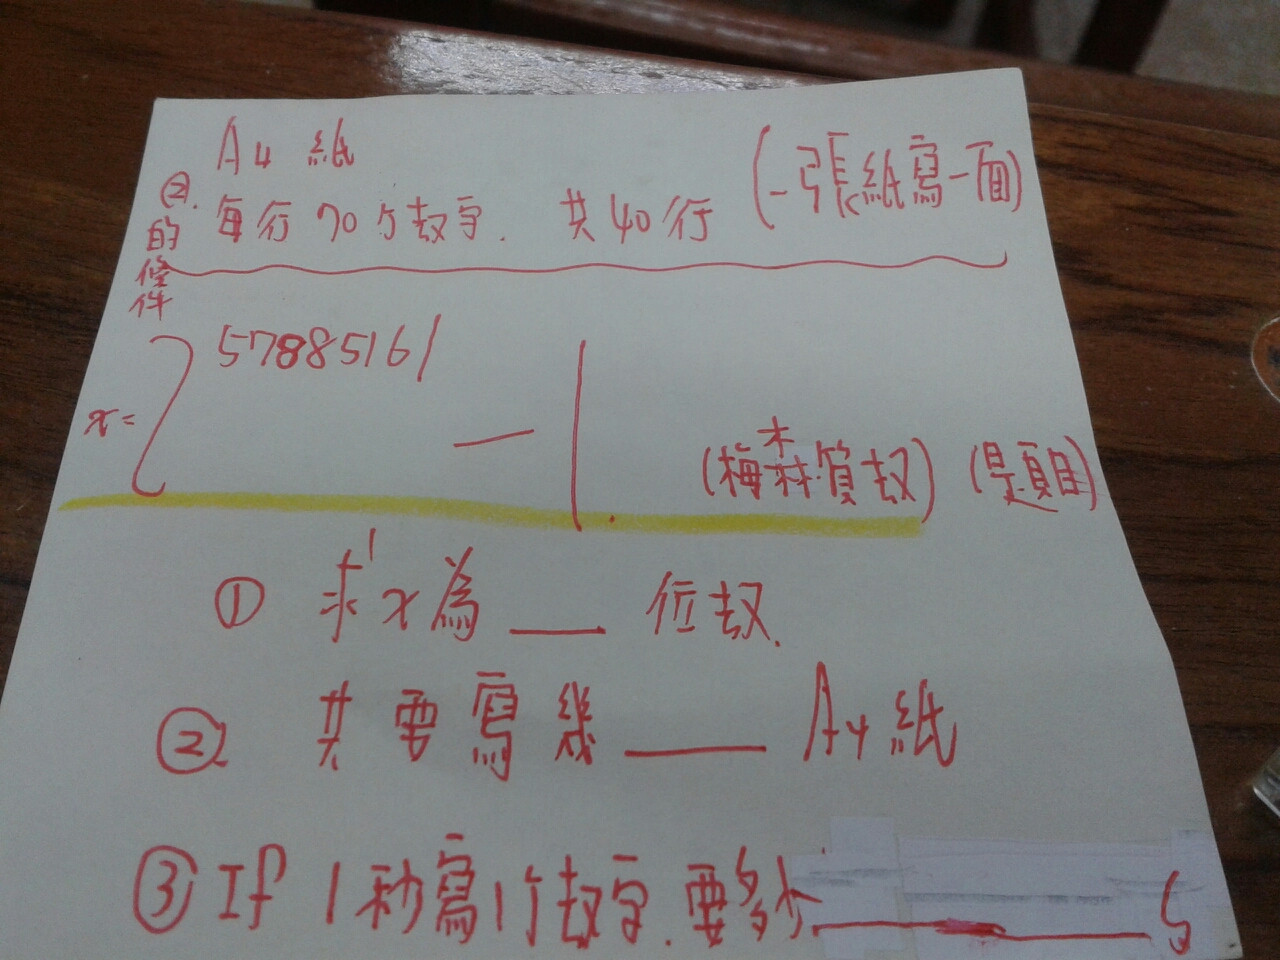 A4 紙
②.的條件 每行70个数字. 共40行 (一張紙寫一面)
x = 2 57885161 － 1. (梅森質数) (是題目)
① 求x為＿＿位数.
② 共要寫幾＿＿A4紙
③ If 1秒寫1个数字. 要多少＿＿S